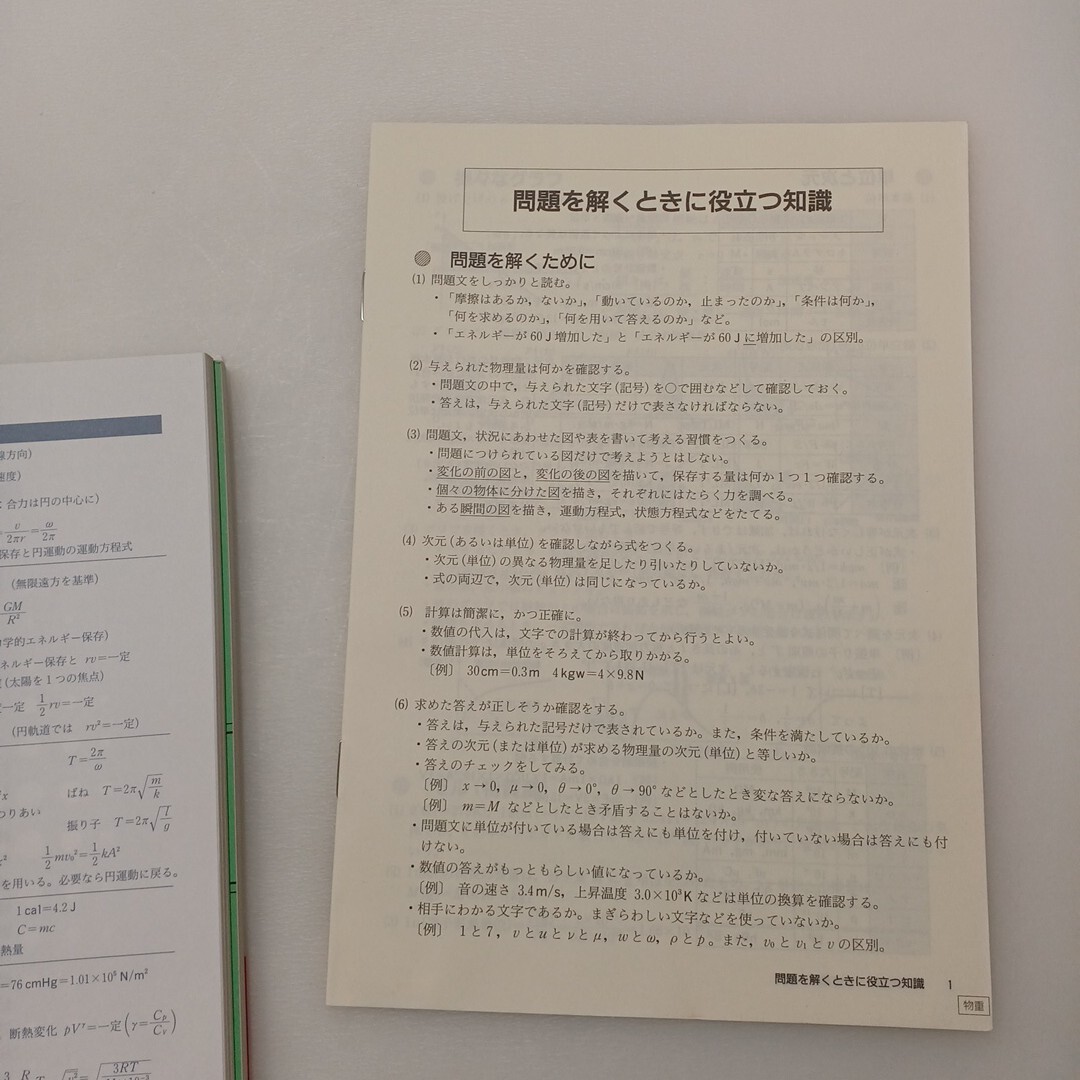 問題を解くときに役立つ知識
問題を解くために
(1) 問題文をしっかりと読む。
・「摩擦はあるか，ないか」，「動いているのか，止まったのか」，「条件は何か」，
「何を求めるのか」，「何を用いて答えるのか」など。
・「エネルギーが60J増加した」と「エネルギーが60Jに増加した」の区別。
(2) 与えられた物理量は何かを確認する。
・問題文の中で，与えられた文字(記号)を○で囲むなどして確認しておく。
・答えは，与えられた文字(記号)だけで表さなければならない。
(3) 問題文，状況にあわせた図や表を書いて考える習慣をつくる。
・問題につけられている図だけで考えようとはしない。
・変化の前の図と，変化の後の図を描いて，保存する量は何か1つ1つ確認する。
・個々の物体に分けた図を描き，それぞれにはたらく力を調べる。
・ある瞬間の図を描き，運動方程式，状態方程式などをたてる。
(4) 次元(あるいは単位)を確認しながら式をつくる。
・次元(単位)の異なる物理量を足したり引いたりしていないか。
・式の両辺で，次元(単位)は同じになっているか。
(5) 計算は簡潔に，かつ正確に。
・数値の代入は，文字での計算が終わってから行うとよい。
・数値計算は，単位をそろえてから取りかかる。
〔例〕 30cm=0.3m 4kgw=4×9.8N
(6) 求めた答えが正しそうか確認をする。
・答えは，与えられた記号だけで表されているか。また，条件を満たしているか。
・答えの次元(または単位)が求める物理量の次元(単位)と等しいか。
・答えのチェックをしてみる。
〔例〕 x→0，μ→0，θ→0°，θ→90°などとしたとき変な答えにならないか。
〔例〕 m=M などとしたとき矛盾することはないか。
・問題文に単位が付いている場合は答えにも単位を付け，付いていない場合は答えにも付
けない。
・数値の答えがもっともらしい値になっているか。
〔例〕 音の速さ 3.4m/s，上昇温度 3.0×10³K などは単位の換算を確認する。
・相手にわかる文字であるか。まぎらわしい文字などを使っていないか。
〔例〕 1と7，vとuとνとμ，wとω，ρとp。また，v₀とv₁とvの区別。
問題を解くときに役立つ知識 1
物重
線方向)
速度)
：合力は円の中心に)
=v/2πr=ω/2π
保存と円運動の運動方程式
(無限遠方を基準)
GM/R²
学的エネルギー保存)
ネルギー保存と rv=一定
(太陽を1つの焦点)
一定 1/2rv=一定
(円軌道では rv²=一定)
T=2π/ω
x ばね T=2π√(m/k)
つりあい
振り子 T=2π√(l/g)
1/2mv₀²=1/2kA²
を用いる。必要なら円運動に戻る。
1cal=4.2J
C=mc
熱量
=76cmHg=1.01×10⁵N/m²
断熱変化 pVᵞ=一定(γ=Cp/Cv)
3RT